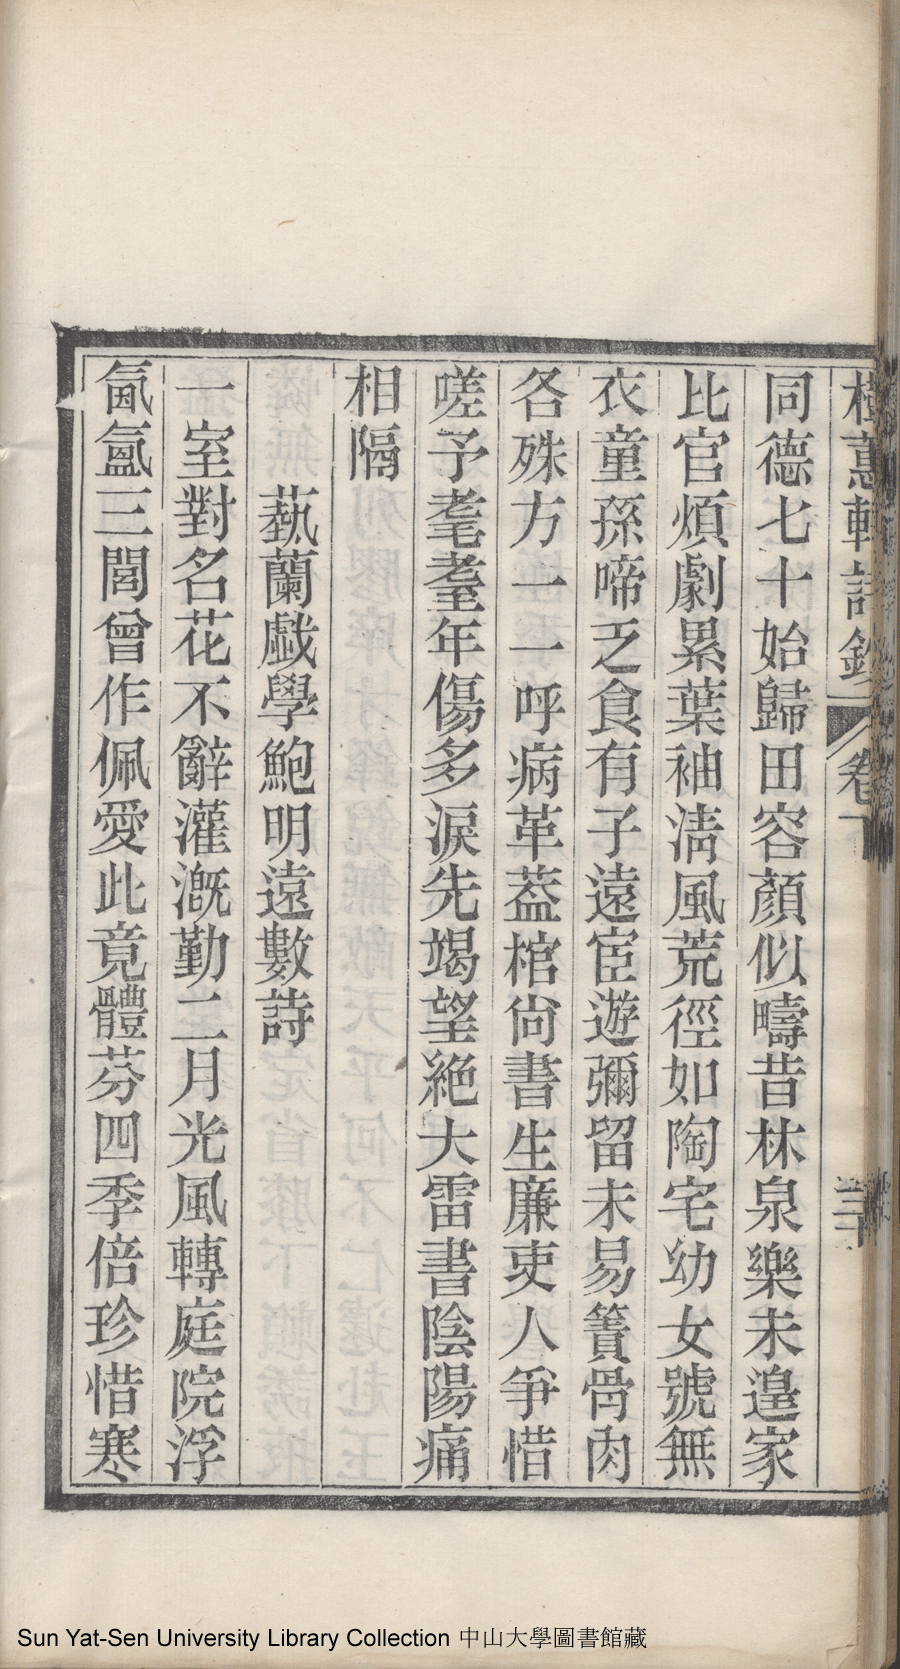 樹蕙軒詩鈔 卷下 三十
同德七十始歸田容顏似疇昔林泉樂未遑家
比官煩劇累葉袖淸風荒徑如陶宅幼女號無
衣童孫啼乏食有子遠宦遊彌留未易簀骨肉
各殊方一一呼病革蓋棺尙書生廉吏人爭惜
嗟予耄耋年傷多淚先竭望絕大雷書陰陽痛
相隔
藝蘭戲學鮑明遠數詩
一室對名花不辭灌漑勤二月光風轉庭院浮
氤氳三閭曾作佩愛此竟體芬四季倍珍惜寒
Sun Yat-Sen University Library Collection 中山大學圖書館藏